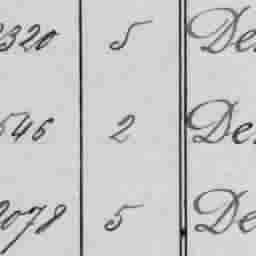 3320 5 De
546 2 De
2078 5 De